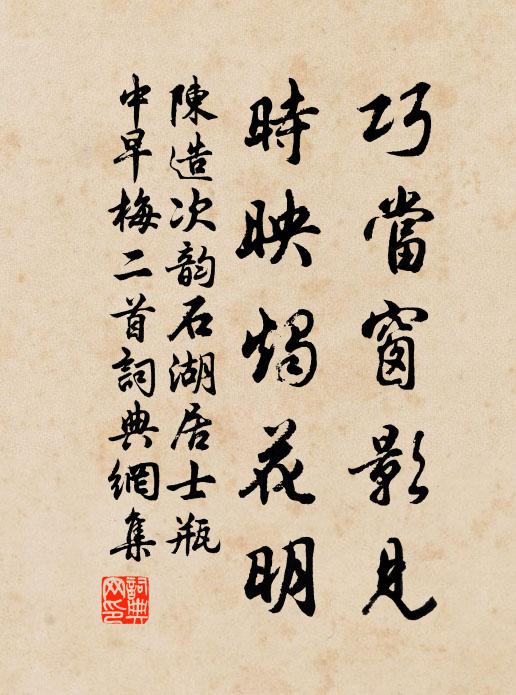 巧當窗影見
時映燭花明
陳造次韵石湖居士瓶
中早梅二首詞典網集
詞典
网印